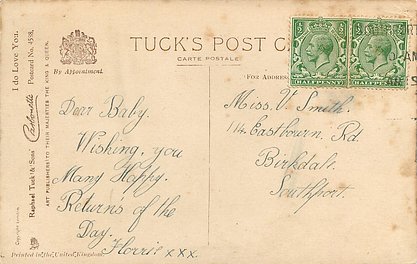 TUCK'S POST C
CARTE POSTALE
By Appointment.
FOR ADDRES
I do Love You.
Postcard No. 4538.
Carbonette
Raphael Tuck & Sons
ART PUBLISHERS TO THEIR MAJESTIES THE KING & QUEEN.
Copyright
Printed in the United Kingdom.
HALFPENNY
HALFPENNY
Dear Baby.
Wishing, you
Many Happy.
Return's of the
Day.
Horrie xxx.
Miss. V. Smith.
114. Eastbourn. Rd.
Birkdale.
Southport.